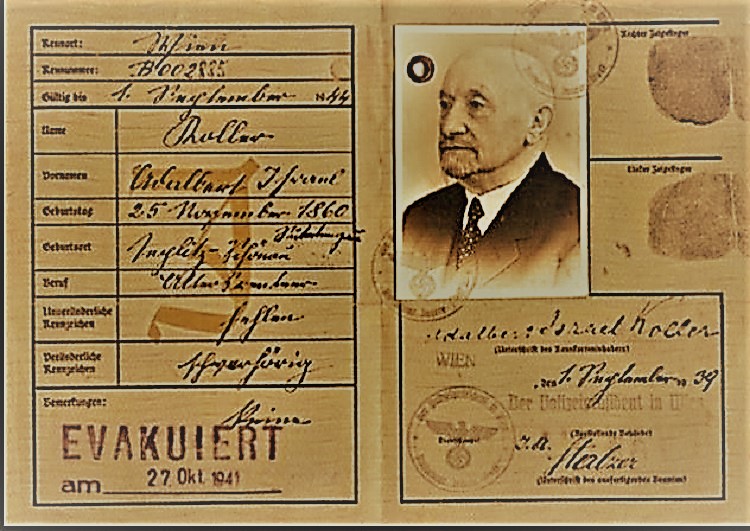 Kennort: Wien
Kennnummer: B002885
Gültig bis 1. September 1944
Name Koller
Vornamen Adalbert Israel
Geburtstag 25 November 1860
Geburtsort
Beruf
Unveränderliche Kennzeichen fehlen
Veränderliche Kennzeichen schwerhörig
Bemerkungen: Keine
EVAKUIERT
am 27. Okt. 1941
J
Rechter Zeigefinger
Linker Zeigefinger
Adalbert Israel Koller
(Unterschrift des Kennkarteninhabers)
WIEN, den 1. September 1939
Der Polizeipräsident in Wien
(Ausstellende Behörde)
Dienststempel
J.A.
(Unterschrift des ausfertigenden Beamten)